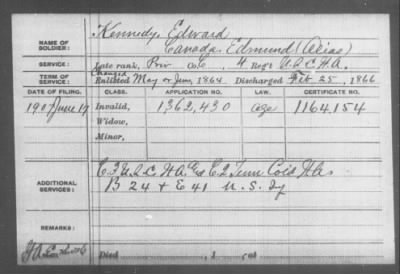 NAME OF SOLDIER: Kennedy, Edward
Canada, Edmund (Alias)
SERVICE: Late rank, Priv Co. C, 4 Regt U.S.C.H.A.
TERM OF SERVICE: Enlisted May or June, 1864 Discharged Feb. 25, 1866
DATE OF FILING. CLASS. APPLICATION NO. LAW. CERTIFICATE NO.
1907 June 17 Invalid, 1362,430 age 1164154
Widow,
Minor,
ADDITIONAL SERVICES: C 3 U.S.C. H.A. C 2 Tenn Cold H.A.
B 24 + E 41 U.S. Iy
REMARKS:
Died , 1 , at